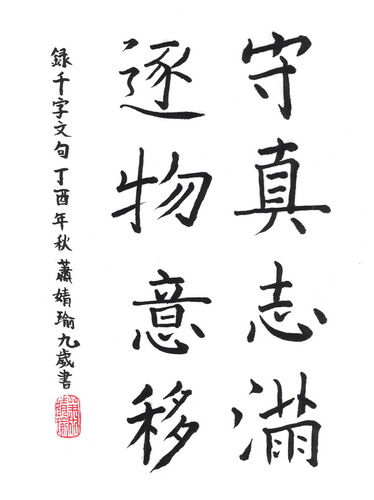 守真志滿
逐物意移
録千字文句丁酉年秋蕭婧瑜九歳書